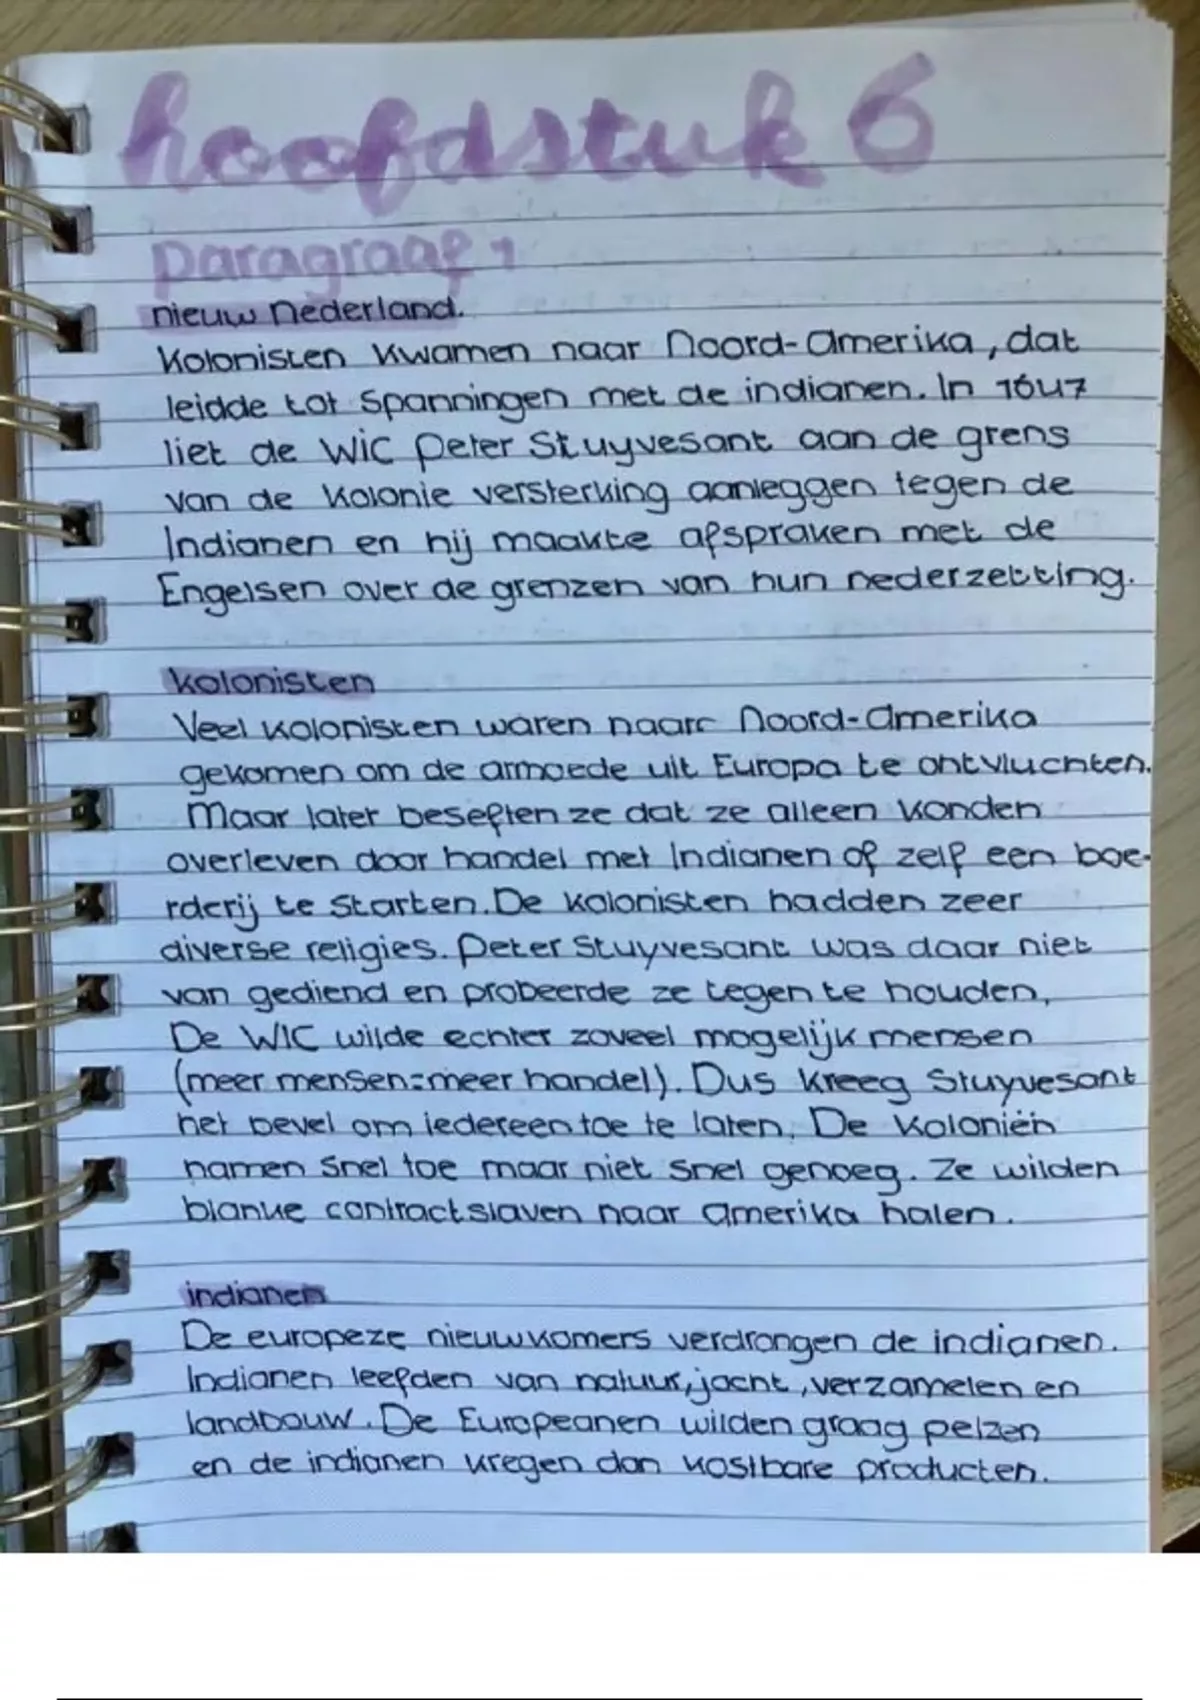 hoofdstuk 6
paragraaf 1
nieuw nederland.
Kolonisten kwamen naar Noord-Amerika, dat
leidde tot spanningen met de indianen. In 1647
liet de WIC Peter Stuyvesant aan de grens
van de kolonie versterking aanleggen tegen de
Indianen en hij maakte afspraken met de
Engelsen over de grenzen van hun nederzetting.
kolonisten
Veel kolonisten waren naar Noord-Amerika
gekomen om de armoede uit Europa te ontvluchten.
Maar later beseften ze dat ze alleen konden
overleven door handel met Indianen of zelf een boe-
rderij te starten. De kolonisten hadden zeer
diverse religies. Peter Stuyvesant was daar niet
van gediend en probeerde ze tegen te houden,
De WIC wilde echter zoveel mogelijk mensen
(meer mensen=meer handel). Dus kreeg Stuyvesant
het bevel om iedereen toe te laten. De Koloniën
namen snel toe maar niet snel genoeg. Ze wilden
blanke contractslaven naar Amerika halen.
indianen
De europeze nieuwkomers verdrongen de indianen.
Indianen leefden van natuur, jacht, verzamelen en
landbouw. De Europeanen wilden graag pelzen
en de indianen kregen dan kostbare producten.